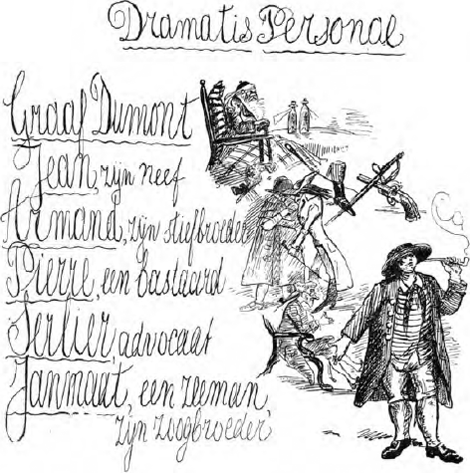 Dramatis Personae
Graaf Dumont
Jean, zijn neef
Armand, zijn stiefbroeder
Pierre, een bastaard
Serlier, advocaat
Janmaat, een zeeman,
zijn zoogbroeder